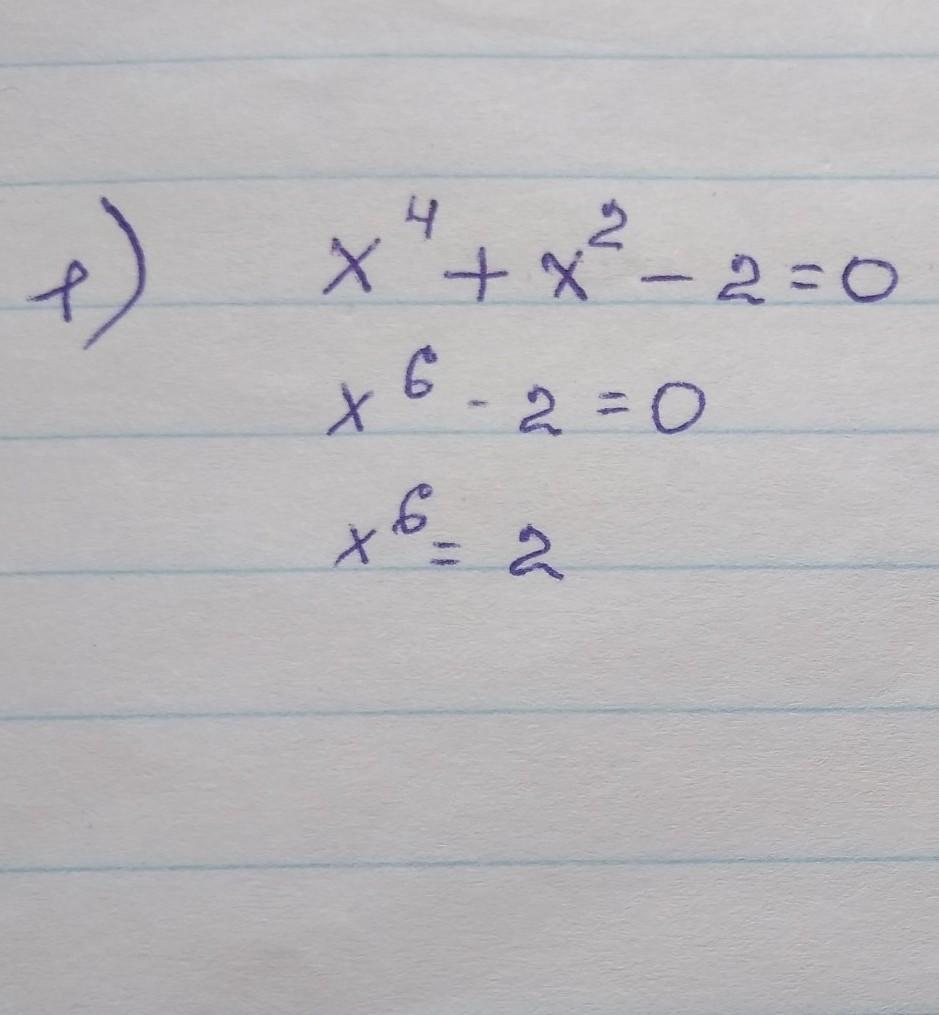 f) x⁴ + x² - 2 = 0
x⁶ - 2 = 0
x⁶ = 2